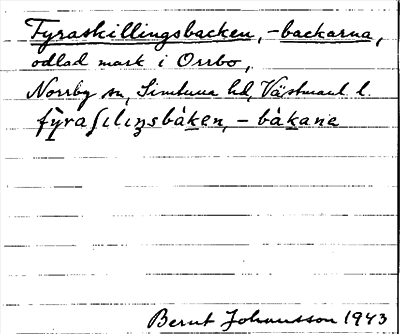 Fyraskillingsbacken, -backarna,
odlad mark i Orrbo,
Norrby sn, Simtuna hd, Västmanl. l.
fy̱raʃiliŋsbàḵen, - bàḵaṉe
Bernt Johansson 1943